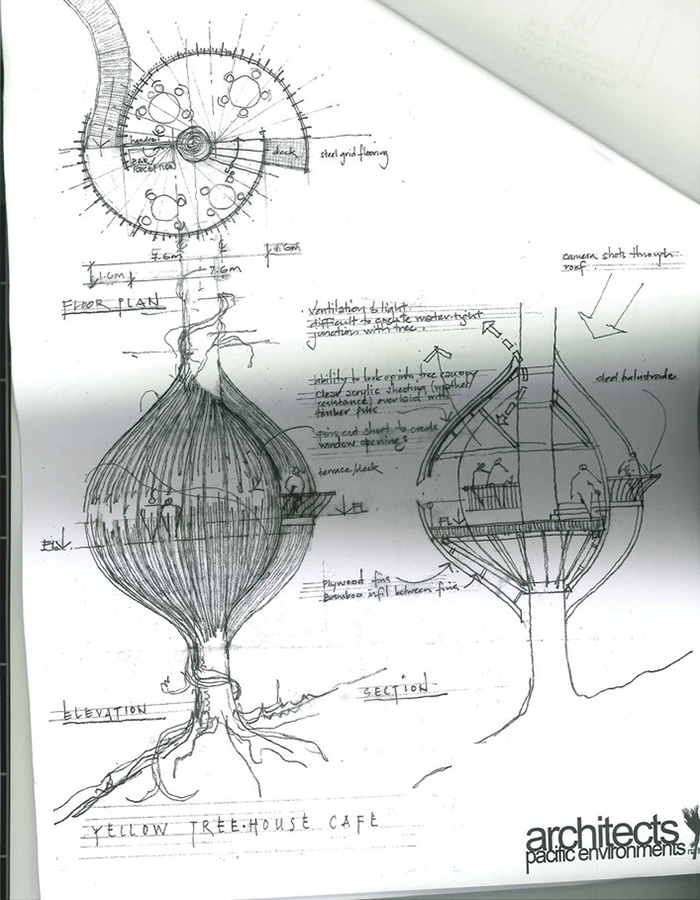 handrail
BAR
RECEPTION
deck
steel grid flooring
7.6m
1.6m
1.6m
7.6m
FLOOR PLAN
camera shots through
roof
ventilation & light
difficult to create water-tight
junction with tree.
ability to look up into tree canopy
clear acrylic sheeting (weather
resistance) overlaid with
timber fins
steel balustrade
fins cut short to create
window openings
terrace/deck
FL
FL
FL
plywood fins
Bamboo infil between fins
ELEVATION
SECTION
YELLOW TREE·HOUSE CAFE
architects
pacific environments